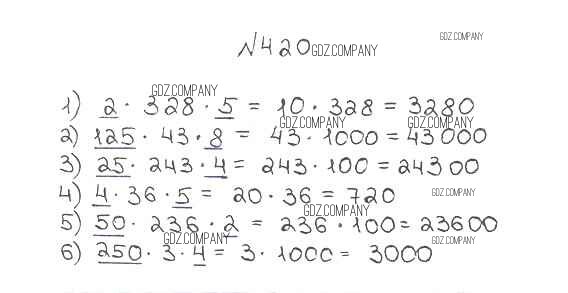 №420 GDZ.COMPANY GDZ.COMPANY
GDZ.COMPANY
1) 2 · 328 · 5 = 10 · 328 = 3280
GDZ.COMPANY GDZ.COMPANY
2) 125 · 43 · 8 = 43 · 1000 = 43000
3) 25 · 243 · 4 = 243 · 100 = 24300
4) 4 · 36 · 5 = 20 · 36 = 720 GDZ.COMPANY
GDZ.COMPANY
5) 50 · 236 · 2 = 236 · 100 = 23600
GDZ.COMPANY GDZ.COMPANY
6) 250 · 3 · 4 = 3 · 1000 = 3000